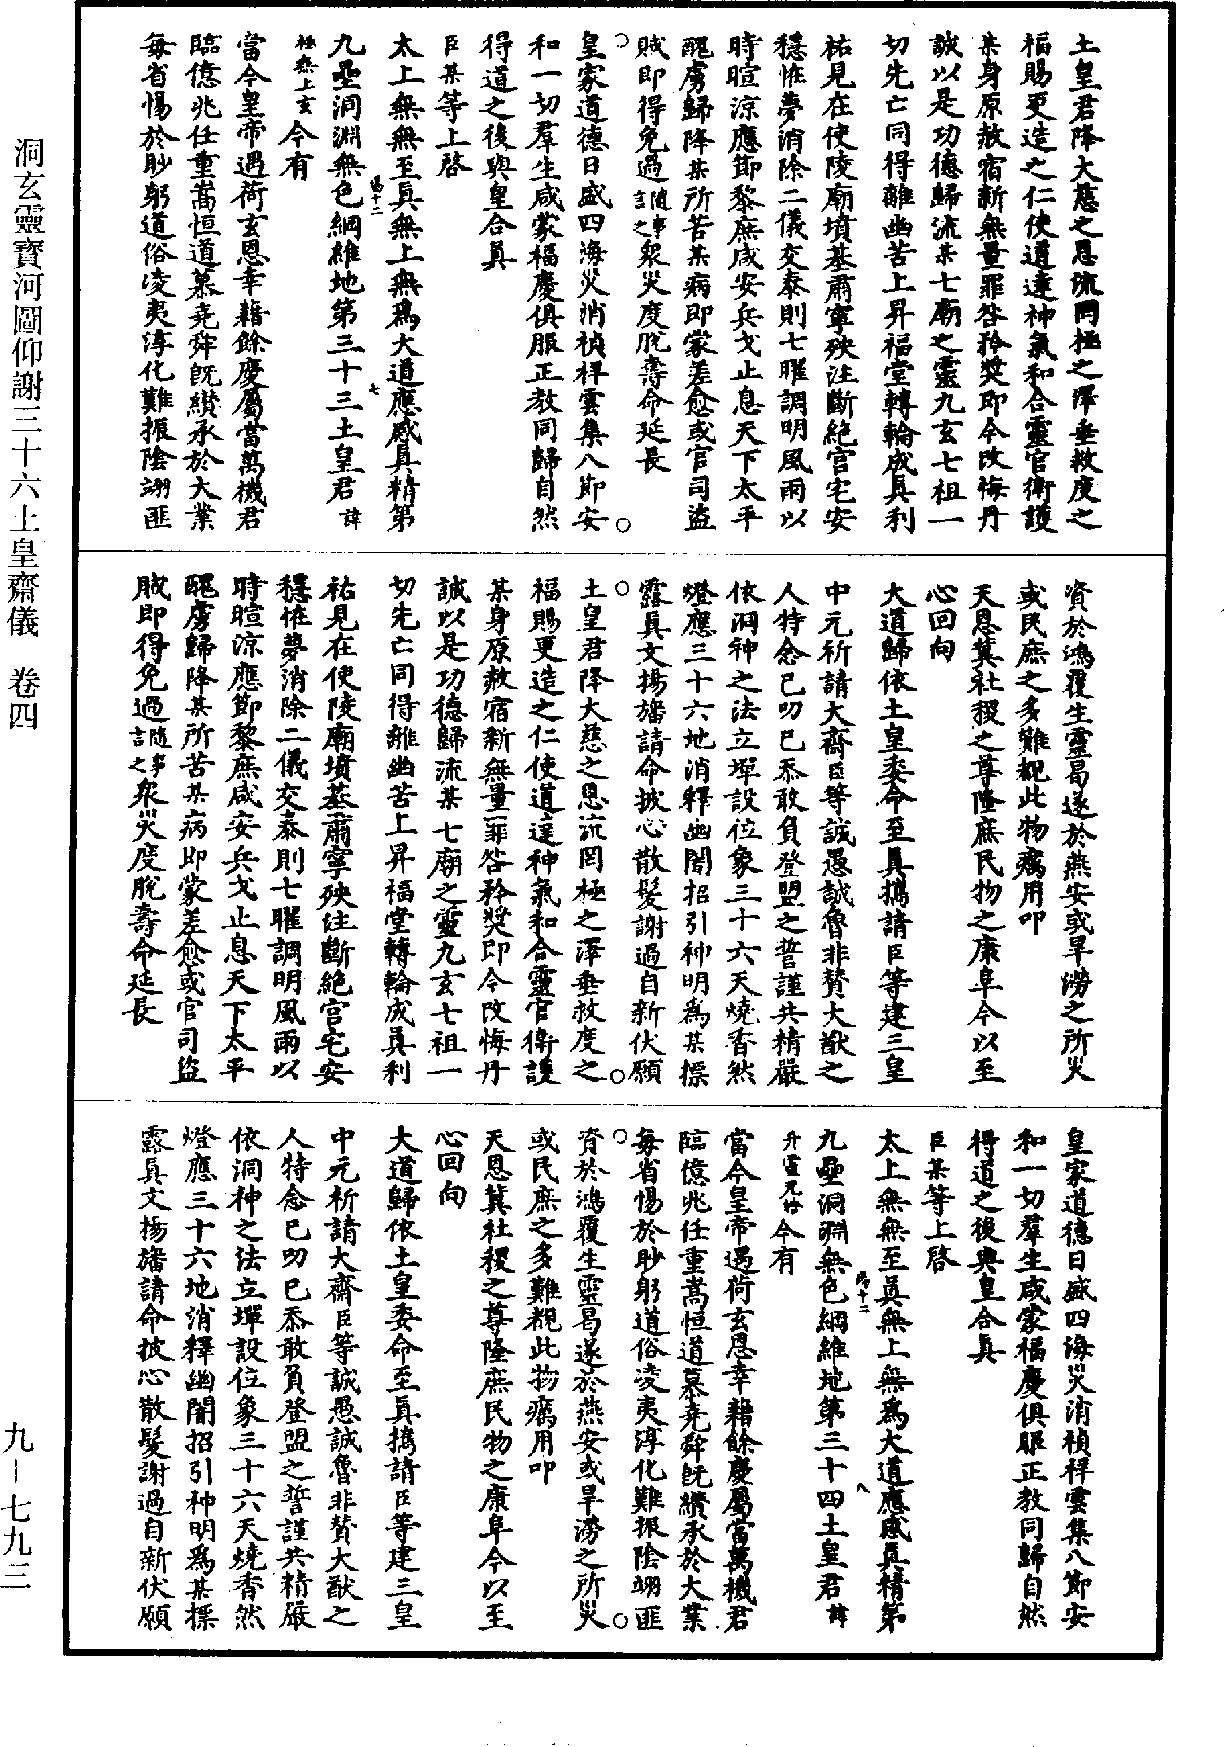 土皇君降大慈之恩流罔極之澤垂救度之
福賜更造之仁使道達神氣和合靈官衛護
某身原赦宿新無量罪咎矜獎即今改悔丹
誠以是功德歸流某七廟之靈九玄七祖一
切先亡同得離幽苦上昇福堂轉輪成真利
祐見在使陵廟墳墓肅寧殃注斷絕宮宅安
穩恠夢消除二儀交泰則七曜調明風雨以
時暄涼應節黎庶咸安兵戈止息天下太平
醜虜歸降某所苦某病即蒙差愈或官司盜
賊即得免過隨事言之衆災度脫壽命延長
皇家道德日盛四海災消禎祥雲集八節安
和一切羣生咸蒙福慶俱服正教同歸自然
得道之後與皇合真
臣某等上啓
太上無無至真無上無爲大道應感真精第
九壘洞淵無色綱維地第三十三土皇君諱
極無上玄今有
當今皇帝遇荷玄恩幸藉餘慶屬當萬機君
臨億兆任重嵩恒道慕堯舜既纘承於大業
每省惕於眇躬道俗凌夷淳化難振陰翊匪
資於鴻覆生靈曷遂於燕安或旱澇之所災
或民庶之多難覩此物癘用叩
天恩冀社稷之尊隆庶民物之康阜今以至
心回向
大道歸依土皇委命至真擕請臣等建三皇
中元祈請大齋臣等誠愚誠魯非贊大猷之
人特念已叨已忝敢負登盟之誓謹共精嚴
依洞神之法立墠設位象三十六天燒香然
燈應三十六地消釋幽闇招引神明爲某標
露真文揚旛請命披心散髮謝過自新伏願
土皇君降大慈之恩流罔極之澤垂救度之
福賜更造之仁使道達神氣和合靈官衛護
某身原赦宿新無量罪咎矜獎即今改悔丹
誠以是功德歸流某七廟之靈九玄七祖一
切先亡同得離幽苦上昇福堂轉輪成真利
祐見在使陵廟墳墓肅寧殃注斷絕宮宅安
穩恠夢消除二儀交泰則七曜調明風雨以
時暄涼應節黎庶咸安兵戈止息天下太平
醜虜歸降某所苦某病即蒙差愈或官司盜
賊即得免過隨事言之衆災度脫壽命延長
皇家道德日盛四海災消禎祥雲集八節安
和一切羣生咸蒙福慶俱服正教同歸自然
得道之後與皇合真
臣某等上啓
太上無無至真無上無爲大道應感真精第
九壘洞淵無色綱維地第三十四土皇君諱
升靈元今有
當今皇帝遇荷玄恩幸藉餘慶屬當萬機君
臨億兆任重嵩恒道慕堯舜既纘承於大業
每省惕於眇躬道俗凌夷淳化難振陰翊匪
資於鴻覆生靈曷遂於燕安或旱澇之所災
或民庶之多難覩此物癘用叩
天恩冀社稷之尊隆庶民物之康阜今以至
心回向
大道歸依土皇委命至真擕請臣等建三皇
中元祈請大齋臣等誠愚誠魯非贊大猷之
人特念已叨已忝敢負登盟之誓謹共精嚴
依洞神之法立墠設位象三十六天燒香然
燈應三十六地消釋幽闇招引神明爲某標
露真文揚旛請命披心散髮謝過自新伏願
洞玄靈寶河圖仰謝三十六土皇齋儀 卷四
九－七九三